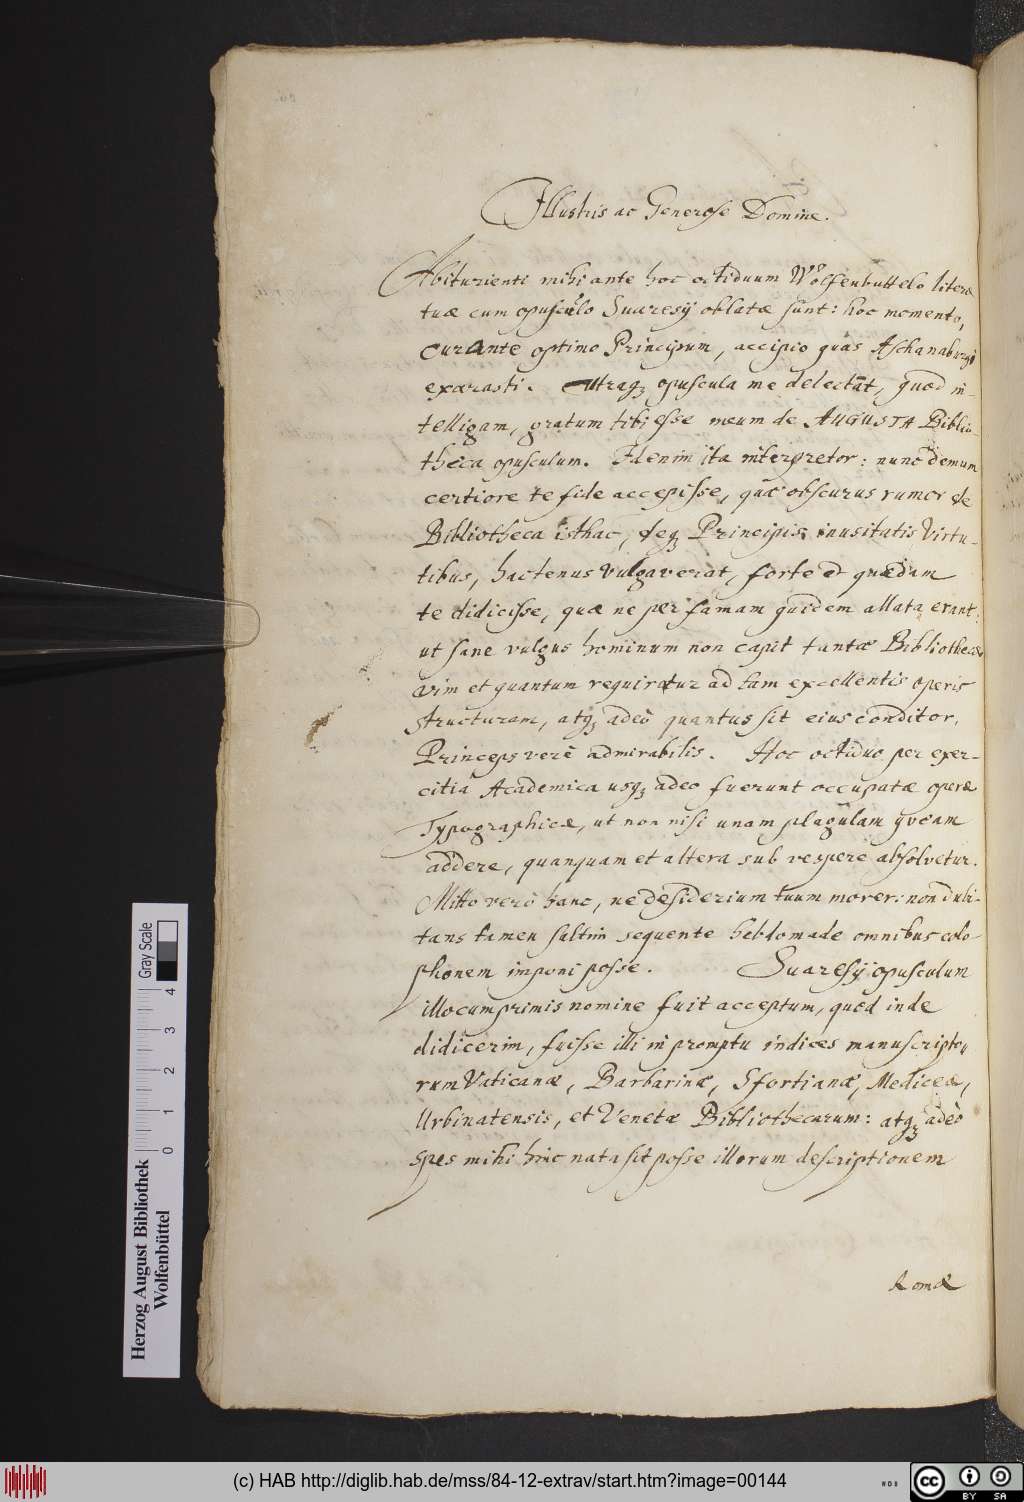 Illustris ac Generose Domine.
Abiturienti mihi ante hoc octiduum Wolfenbuttelo literæ
tuæ cum opusculo Suaresij oblatæ sunt: hoc momento,
curante optimo Principum, accipio quas Aschanaburgi
exarasti. Utraq; opuscula me delectãt, quod in-
telligam, gratum tibi esse meum de AUGUSTA Biblio-
theca opusculum. Id enim ita interpretor: nunc demum
certiore te fide accepisse, quæ obscurus rumor de
Bibliotheca isthac, deq; Principis inusitatis Virtu-
tibus, hactenus vulgaverat, forte et quædam
te didicisse, quæ ne per famam quidem allata erant:
ut sane vulgus hominum non capit tantæ Bibliothecæ
vim et quantum requiratur ad tam excellentis operis
structuram, atq; adeò quantus sit eius conditor,
Princeps verè admirabilis. Hoc octiduo per exer-
citia Academica usq; adeo fuerunt occupatæ operæ
Typographicæ, ut non nisi unam plagulam queam
addere, quanquam et altera sub vespere absolvetur.
Mitto verò hanc, ne desiderium tuum morer: non dubi-
tans tamen saltim sequente hebdomade omnibus colo-
phonem imponi posse. Suaresij opusculum
illo cumprimis nomine fuit acceptum, quod inde
didicerim, fuisse illi in promptu indices manuscripto-
rum Vaticanæ, Barbarinæ, Sfortianæ, Mediceæ,
Urbinatensis, et Venetæ Bibliothecarum: atq; adeò
spes mihi hinc nata sit posse illorum descriptionem
Romæ
Herzog August Bibliothek
Wolfenbüttel
0 1 2 3 4
Gray Scale
(c) HAB http://diglib.hab.de/mss/84-12-extrav/start.htm?image=00144
cc BY SA